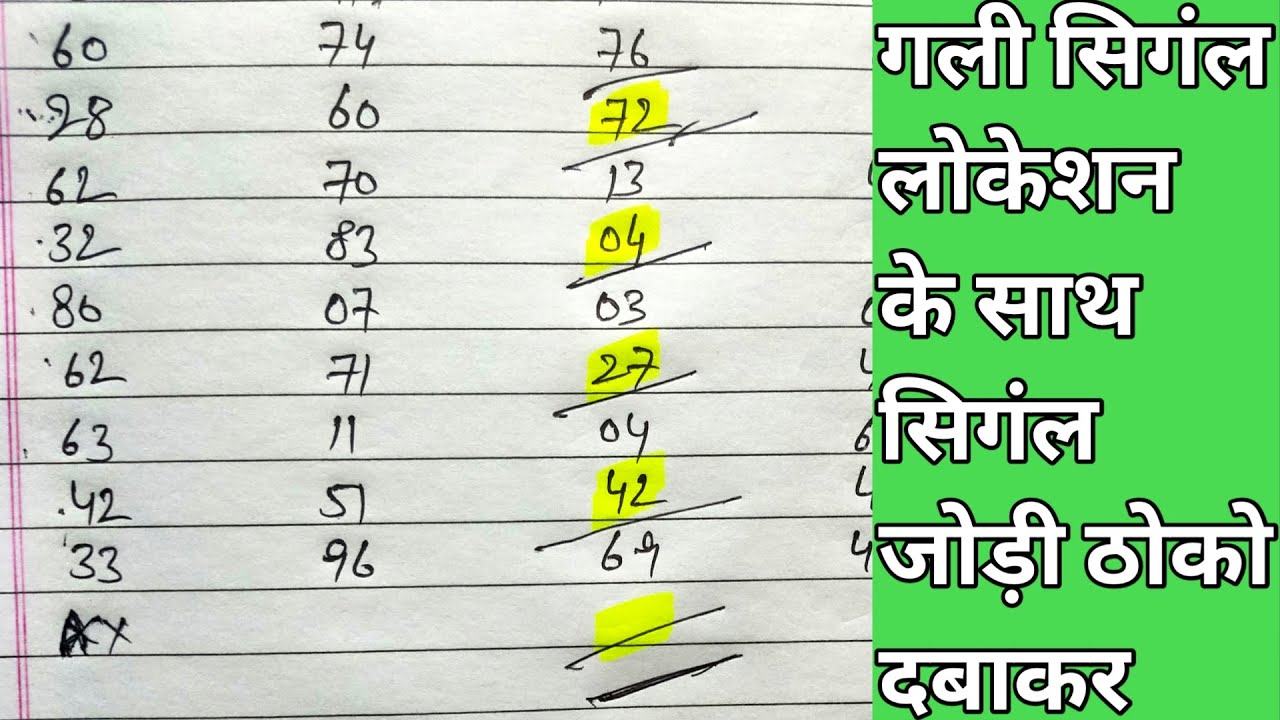 60 74 76
28 60 72
62 70 13
32 83 04
80 07 03
62 71 27
63 11 04
42 51 42
33 96 69
गली सिगंल
लोकेशन
के साथ
सिगंल
जोड़ी ठोको
दबाकर